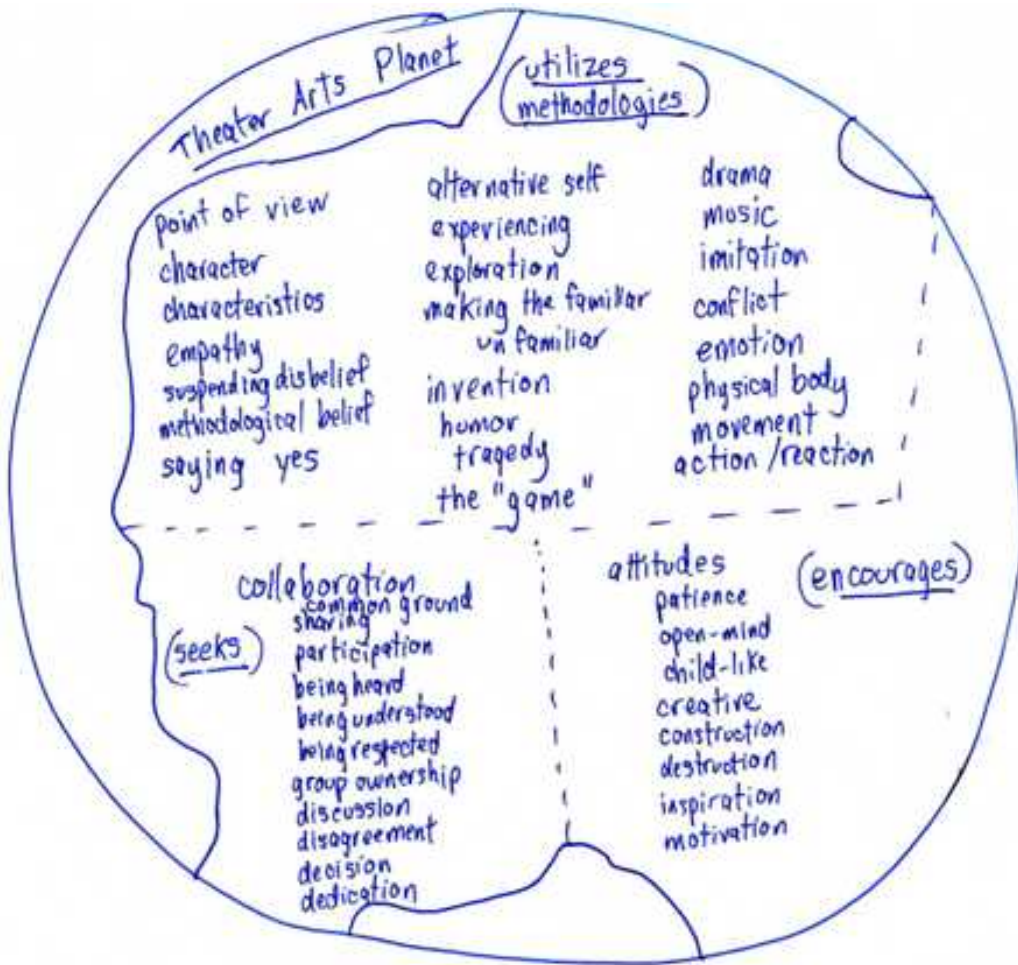 Theater Arts Planet
(utilizes
methodologies)
point of view
character
characteristics
empathy
suspending disbelief
methodological belief
saying yes
alternative self
experiencing
exploration
making the familiar
unfamiliar
invention
humor
tragedy
the "game"
drama
music
imitation
conflict
emotion
physical body
movement
action/reaction
(seeks)
collaboration
common ground
sharing
participation
being heard
being understood
being respected
group ownership
discussion
disagreement
decision
dedication
attitudes
(encourages)
patience
open-mind
child-like
creative
construction
destruction
inspiration
motivation